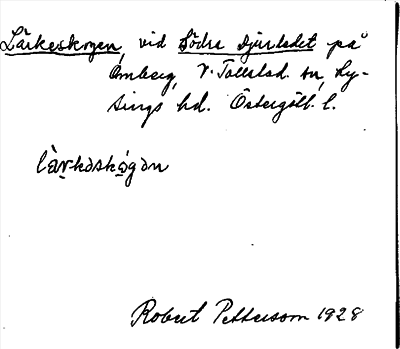 Lärkeskogen, vid Södra Djurledet på
Omberg, V. Tollstad. sn, Ly-
sings hd. Östergötl. l.
là̱rkəskó̱gən
Robert Pettersson 1928